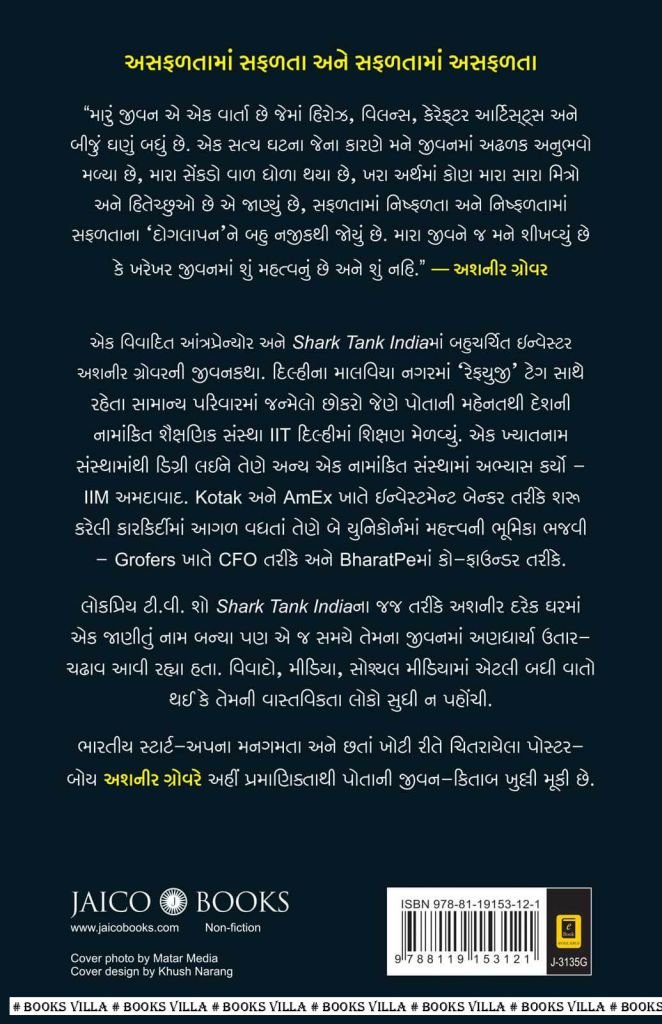 અસફળતામાં સફળતા અને સફળતામાં અસફળતા
“મારું જીવન એ એક વાર્તા છે જેમાં હિરોઝ, વિલન્સ, કેરેક્ટર આર્ટિસ્ટ્સ અને
બીજું ઘણું બધું છે. એક સત્ય ઘટના જેના કારણે મને જીવનમાં અઢળક અનુભવો
મળ્યા છે, મારા સેંકડો વાળ ધોળા થયા છે, ખરા અર્થમાં કોણ મારા સારા મિત્રો
અને હિતેચ્છુઓ છે એ જાણ્યું છે, સફળતામાં નિષ્ફળતા અને નિષ્ફળતામાં
સફળતાના ‘દોગલાપન’ને બહુ નજીકથી જોયું છે. મારા જીવને જ મને શીખવ્યું છે
કે ખરેખર જીવનમાં શું મહત્વનું છે અને શું નહિ.” — અશનીર ગ્રોવર
એક વિવાદિત આંત્રપ્રેન્યોર અને Shark Tank Indiaમાં બહુચર્ચિત ઇન્વેસ્ટર
અશનીર ગ્રોવરની જીવનકથા. દિલ્હીના માલવિયા નગરમાં ‘રેફયુજી’ ટેગ સાથે
રહેતા સામાન્ય પરિવારમાં જન્મેલો છોકરો જેણે પોતાની મહેનતથી દેશની
નામાંકિત શૈક્ષણિક સંસ્થા IIT દિલ્હીમાં શિક્ષણ મેળવ્યું. એક ખ્યાતનામ
સંસ્થામાંથી ડિગ્રી લઈને તેણે અન્ય એક નામાંકિત સંસ્થામાં અભ્યાસ કર્યો –
IIM અમદાવાદ. Kotak અને AmEx ખાતે ઇન્વેસ્ટમેન્ટ બેન્કર તરીકે શરૂ
કરેલી કારકિર્દીમાં આગળ વધતાં તેણે બે યુનિકોર્નમાં મહત્ત્વની ભૂમિકા ભજવી
– Grofers ખાતે CFO તરીકે અને BharatPeમાં કો–ફાઉન્ડર તરીકે.
લોકપ્રિય ટી.વી. શો Shark Tank Indiaના જજ તરીકે અશનીર દરેક ઘરમાં
એક જાણીતું નામ બન્યા પણ એ જ સમયે તેમના જીવનમાં અણધાર્યા ઉતાર–
ચઢાવ આવી રહ્યા હતા. વિવાદો, મીડિયા, સોશ્યલ મીડિયામાં એટલી બધી વાતો
થઈ કે તેમની વાસ્તવિકતા લોકો સુધી ન પહોંચી.
ભારતીય સ્ટાર્ટ–અપના મનગમતા અને છતાં ખોટી રીતે ચિતરાયેલા પોસ્ટર–
બોય અશનીર ગ્રોવરે અહીં પ્રમાણિકતાથી પોતાની જીવન–કિતાબ ખુલ્લી મૂકી છે.
JAICO J BOOKS
www.jaicobooks.com Non-fiction
Cover photo by Matar Media
Cover design by Khush Narang
ISBN 978-81-19153-12-1
9 788119 153121
e Book
AVAILABLE
J-3135G
# BOOKS VILLA # BOOKS VILLA # BOOKS VILLA # BOOKS VILLA # BOOKS VILLA # BOOKS VILLA # BOOKS